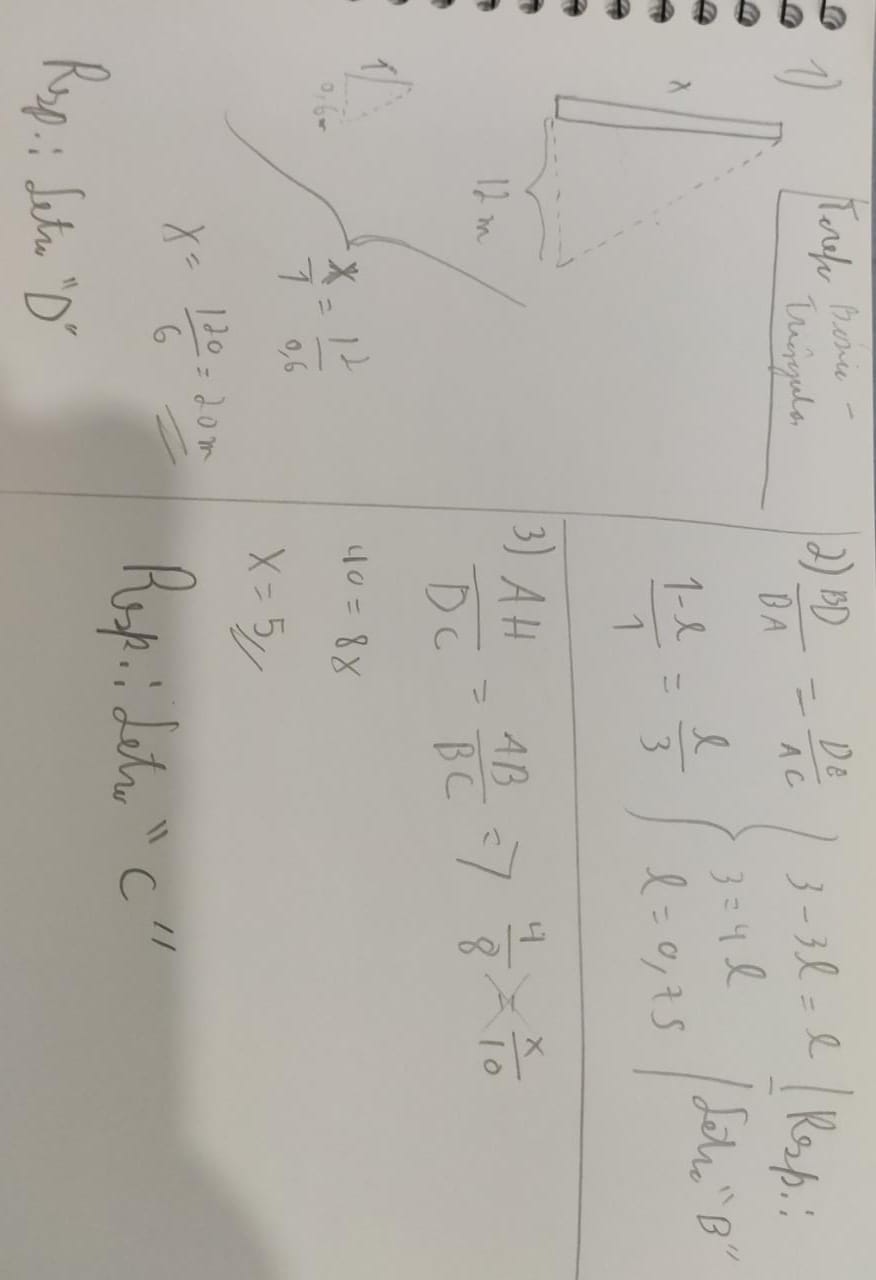 1)
Tarefa Básica -
Triângulos
x
12 m
1
0,6m
x/1 = 12/0,6
x = 120/6 = 20m
Resp.: Letra "D"
2) BD/BA = DE/AC
1-l/1 = l/3
3-3l = l
3 = 4l
l = 0,75
Resp.:
Letra "B"
3) AH/DC = AB/BC => 4/8 = x/10
40 = 8x
x = 5
Resp.: Letra "C"